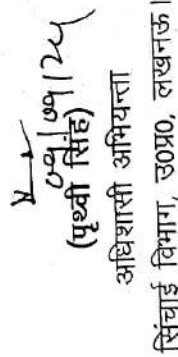 ०१/०१/२५
(पृथ्वी सिंह)
अधिशासी अभियन्ता
सिंचाई विभाग, उ०प्र०, लखनऊ।